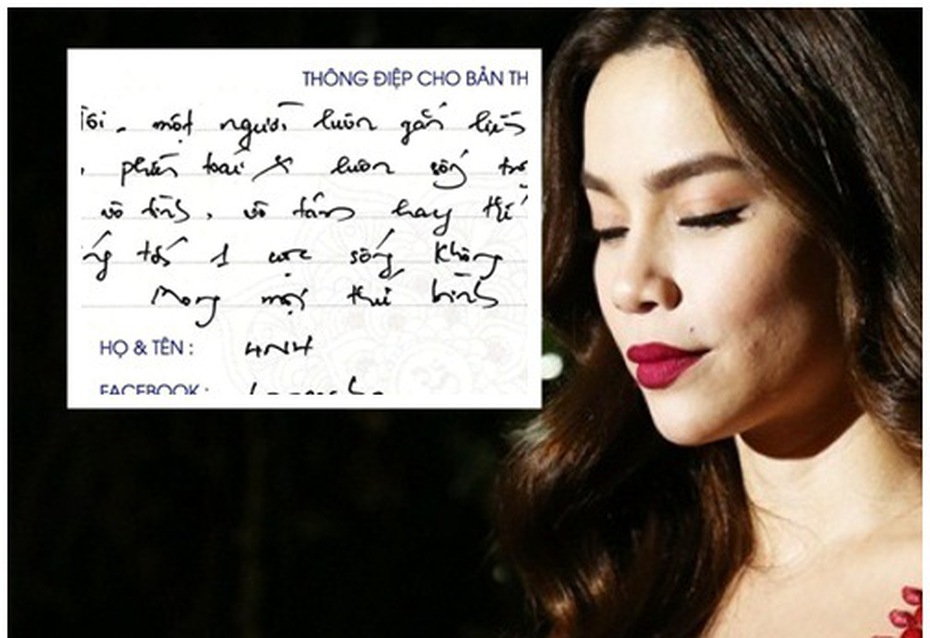 THÔNG ĐIỆP CHO BẢN TH
Tôi - một người luôn gắn liền
phiền toái & luôn sống
vô tình, vô tâm hay thí
1 cuộc sống không
Mong mọi thứ bình
HỌ & TÊN : HNH
FACEBOOK :